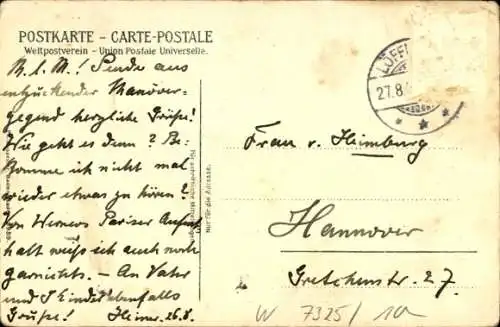 POSTKARTE – CARTE-POSTALE
Weltpostverein – Union Postale Universelle.
M. l. M.! Sende aus
entzückender Manöver-
gegend herzliche Grüße!
Wie geht es denn? Be-
komme ich nicht mal
wieder etwas zu hören?
Von Werners Pariser Aufent
halt weiß ich auch noch
garnichts. – An Vater
und Kinder ebenfalls
Grüße! 26.8.
Nur für die Adresse.
LÖFF
27.8.
Frau v. Heimburg
Hannover
Gretchenstr. 27.
W 7325/